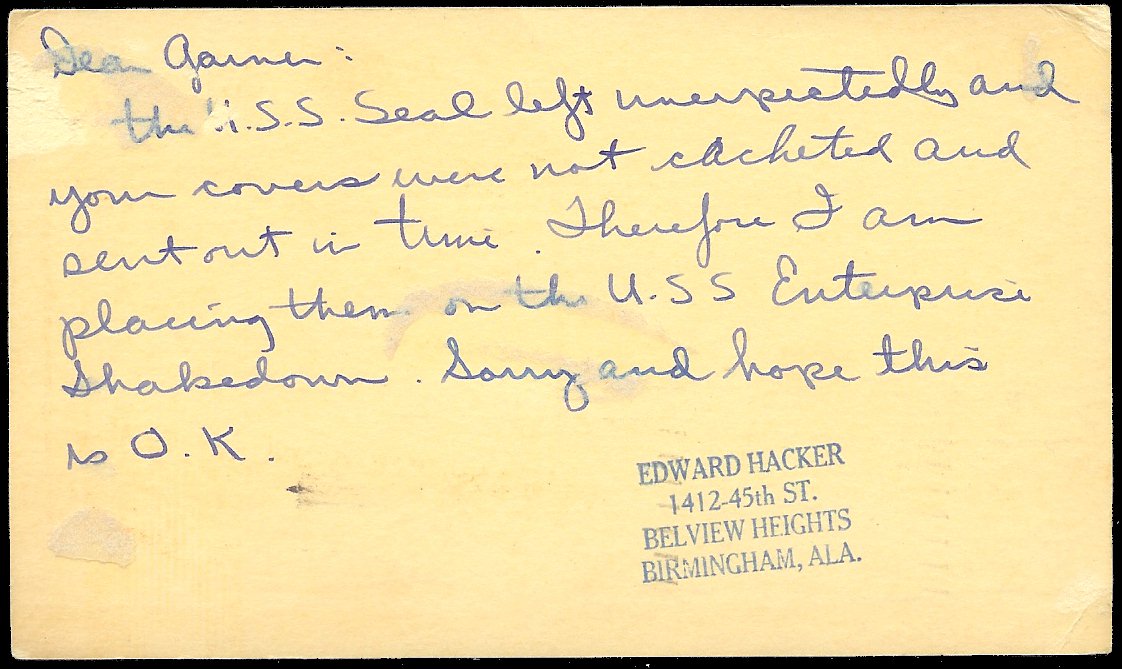 Dear Garner:
the U.S.S. Seal left unexpectedly and
your covers were not cacheted and
sent out in time. Therefore I am
placing them on the U.S S Enterprise
Shakedown. Sorry and hope this
is O.K.
EDWARD HACKER
1412-45th ST.
BELVIEW HEIGHTS
BIRMINGHAM, ALA.